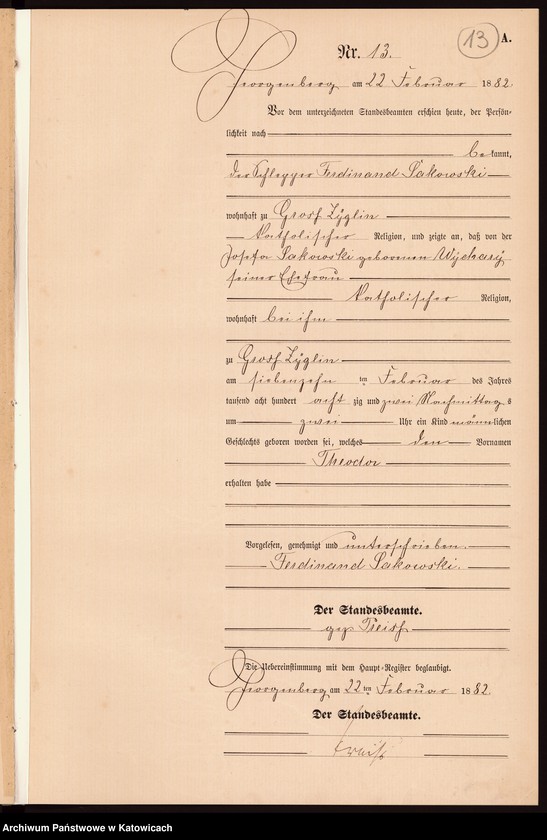 13 A.
Nr. 13.
Georgenberg am 22 Februar 1882.
Vor dem unterzeichneten Standesbeamten erschien heute, der Persön-
lichkeit nach
bekannt,
der Schlepper Ferdinand Sakowski
wohnhaft zu Groß Zyglin
katholischer Religion, und zeigte an, daß von der
Josefa Sakowski geborenen
seiner Ehefrau
katholischer Religion,
wohnhaft bei ihm
zu Groß Zyglin
am siebenzehn ten Februar des Jahres
tausend acht hundert acht zig und zwei Nachmittag s
um zwei Uhr ein Kind männlichen
Geschlechts geboren worden sei, welches den Vornamen
Theodor
erhalten habe
Vorgelesen, genehmigt und unterschrieben.
Ferdinand Sakowski.
Der Standesbeamte.
gez
Die Uebereinstimmung mit dem Haupt-Register beglaubigt.
Georgenberg am 22 ten Februar 1882.
Der Standesbeamte.
Archiwum Państwowe w Katowicach